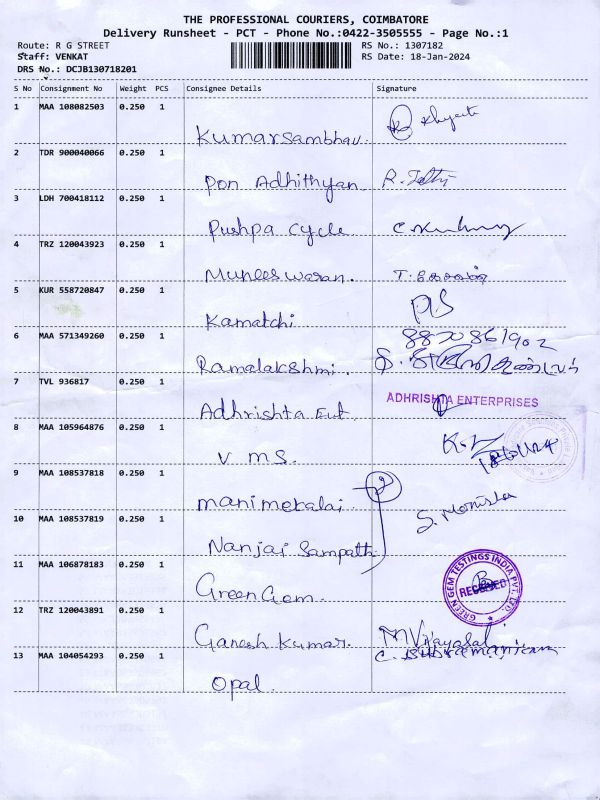 THE PROFESSIONAL COURIERS, COIMBATORE
Delivery Runsheet - PCT - Phone No.:0422-3505555 - Page No.:1
Route: R G STREET RS No.: 1307182
Staff: VENKAT RS Date: 18-Jan-2024
DRS No.: DCJB130718201
S No Consignment No Weight PCS Consignee Details Signature
1 MAA 108082503 0.250 1
Kumarsambhav.
2 TDR 900040066 0.250 1
Pon Adhithyan.
3 LDH 700418112 0.250 1
Pushpa cycle
4 TRZ 120043923 0.250 1
Muneeswaran.
5 KUR 558720847 0.250 1
Kamatchi
6 MAA 571349260 0.250 1
Ramalakshmi.
7 TVL 936817 0.250 1
ADHRISHTA ENTERPRISES
Adhrishta Ent
8 MAA 105964876 0.250 1
V M S.
9 MAA 108537818 0.250 1
manimekalai
S. Monisha
10 MAA 108537819 0.250 1
Nanjai Sampath
11 MAA 106878183 0.250 1
GREEN GEM TESTINGS INDIA PVT. LTD.
RECEIVED
GreenGem.
12 TRZ 120043891 0.250 1
Ganesh Kumar.
13 MAA 104054293 0.250 1
Opal.